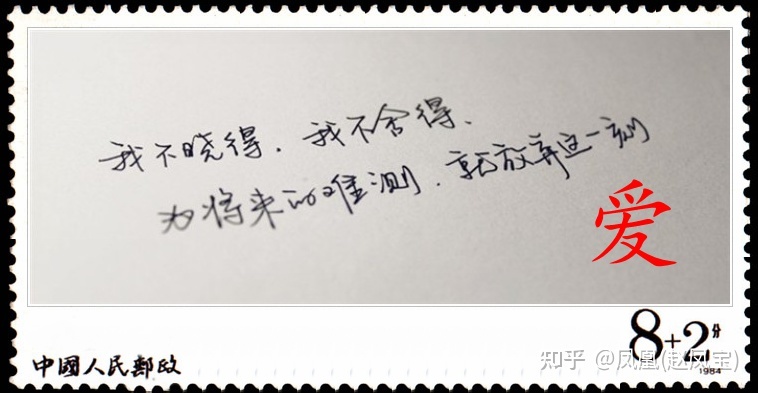 我不晓得.我不舍得、
为将来的难测.就放弃这一刻
爱
8+2分
中國人民郵政
知乎 @凤凰(赵凤宝)
1984